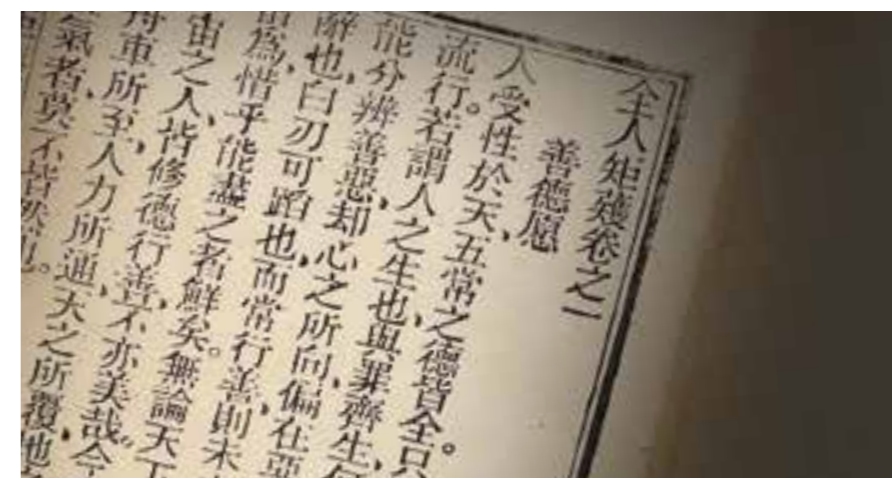 全人矩矱卷之一
善德愿
人受性於天、五常之德皆全
流行。若謂人之生也、與罪齊生、
能分辨善惡、却心之所向、偏在
辭也、白刃可蹈也、而常行善、則未
為、惜乎能盡之者鮮矣。無論天下
宙之人、皆修德行善、不亦美哉。今
舟車所至、人力所通、天之所覆、地
氣者、莫不皆然